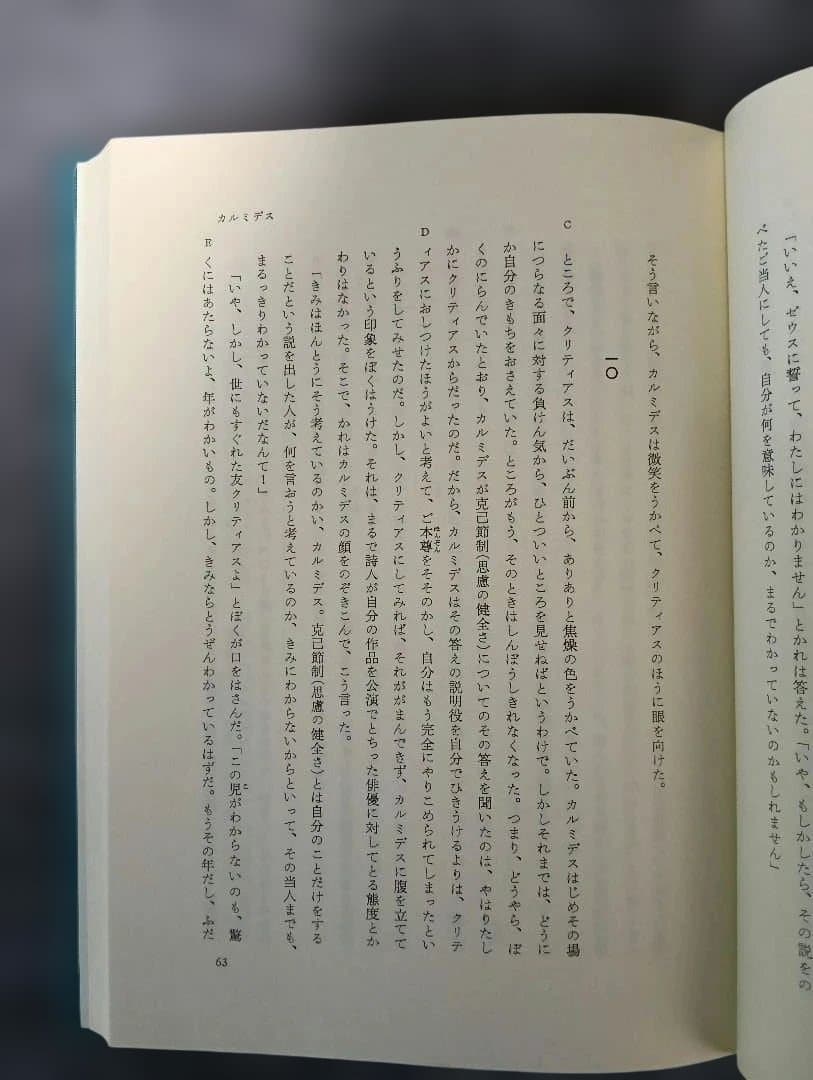 「いいえ、ゼウスに誓って、わたしにはわかりません」とかれは答えた。「いや、もしかしたら、その説をの
べたご当人にしても、自分が何を意味しているのか、まるでわかっていないのかもしれません」
そう言いながら、カルミデスは微笑をうかべて、クリティアスのほうに眼を向けた。
一〇
C
ところで、クリティアスは、だいぶん前から、ありありと焦燥の色をうかべていた。カルミデスはじめその場
につらなる面々に対する負けん気から、ひとついいところを見せねばというわけで。しかしそれまでは、どうに
か自分のきもちをおさえていた。ところがもう、そのときはしんぼうしきれなくなった。つまり、どうやら、ぼ
くのにらんでいたとおり、カルミデスが克己節制(思慮の健全さ)についてのその答えを聞いたのは、やはりたし
かにクリティアスからだったのだ。だから、カルミデスはその答えの説明役を自分でひきうけるよりは、クリテ
D
ィアスにおしつけたほうがよいと考えて、ご本尊をそそのかし、自分はもう完全にやりこめられてしまったとい
ほんぞん
うふりをしてみせたのだ。しかし、クリティアスにしてみれば、それががまんできず、カルミデスに腹を立てて
いるという印象をぼくはうけた。それは、まるで詩人が自分の作品を公演でとちった俳優に対してとる態度とか
わりはなかった。そこで、かれはカルミデスの顔をのぞきこんで、こう言った。
「きみはほんとうにそう考えているのかい、カルミデス。克己節制(思慮の健全さ)とは自分のことだけをする
ことだという説を出した人が、何を言おうと考えているのか、きみにわからないからといって、その当人までも、
まるっきりわかっていないだなんて！」
「いや、しかし、世にもすぐれた友クリティアスよ」とぼくが口をはさんだ。「この児がわからないのも、驚
こ
E
くにはあたらないよ、年がわかいもの。しかし、きみならとうぜんわかっているはずだ。もうその年だし、ふだ
カルミデス
63